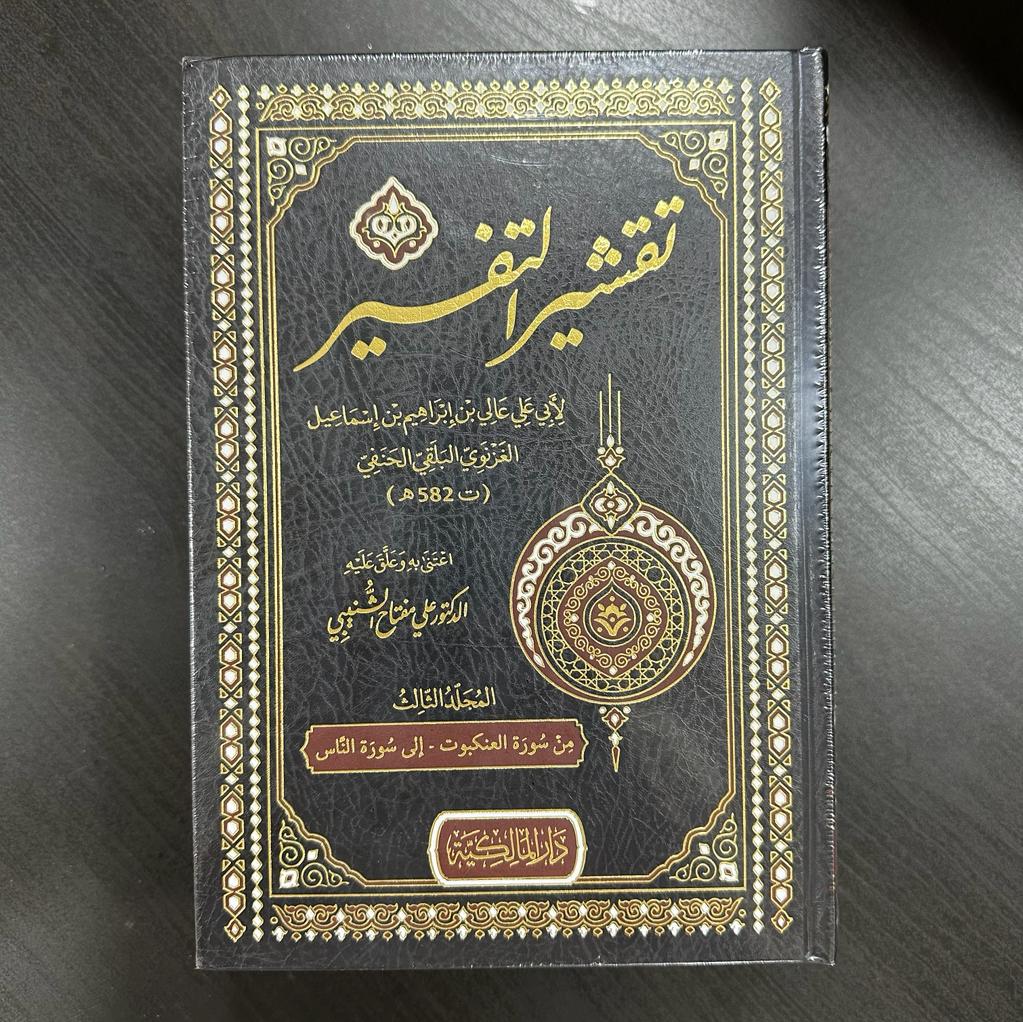 تقشير التفسير
لِأَبِي عَلِي عَالِي بْنِ إِبْرَاهِيم بْنِ إِسْمَاعِيل
الغَزْنَوِيّ البَلَقِيّ الحَنَفِيّ
(ت 582 هـ)
اعْتَنَى بِهِ وَعَلَّقَ عَلَيْهِ
الدكتور علي مفتاح الشُّنيبي
المُجَلَّدُ الثَّالِثُ
مِنْ سُورَة العنكبوت - إلى سُورَة النَّاس
دَارُ المَالِكِيَّة